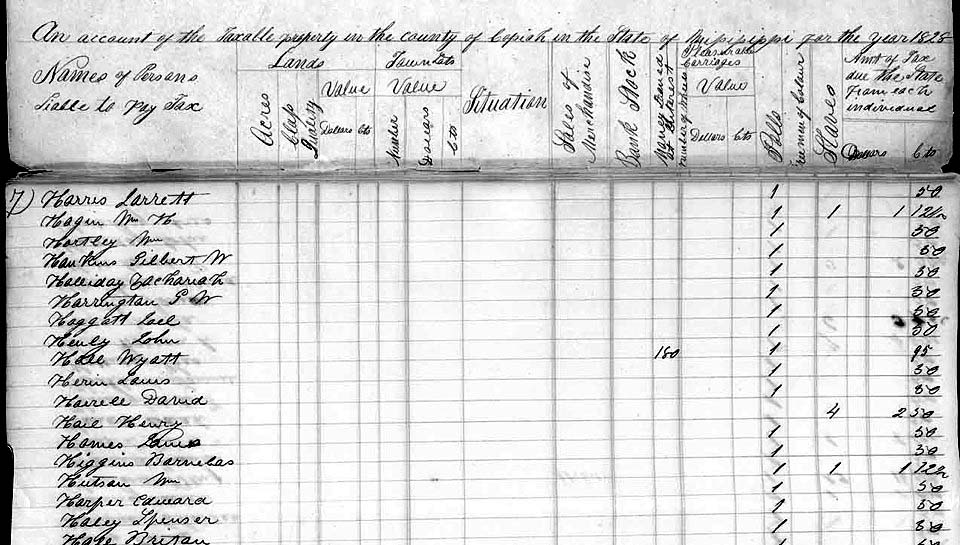 An account of the Taxable property in the county of Copiah in the State of Mississippi for the year 1825
Names of Persons
Liable to pay Tax
Lands
Acres
Class
Quality
Value
Dollars Cts
Town Lots
Number
Value
Dollars
Cts
Situation
Sales of
Merchandise
Bank Stock
Money Loaned
at Interest
Pleasurable
Carriages
Number
Value
Dollars Cts
Polls
Free men of Colour
Slaves
Amt of Tax
due the State
from each
individual
Dollars Cts
7) Harris Jarrett 1 50
Hagin Wm H 1 1 1 12½
Hartley Wm 1 50
Hawkins Gilbert W 1 50
Halliday Zachariah 1 50
Harrington G W 1 50
Haggatt 1 50
Henly John 1 50
Hall Wyatt 180 1 95
Herin 1 50
Harrell David 1 50
Hail Henry 4 2 50
Hames James 1 50
Higgins Barnebas 1 50
Hutson Wm 1 1 1 12½
Harper Edward 1 50
Haley Spenser 1 50
Hall Britan 1 50